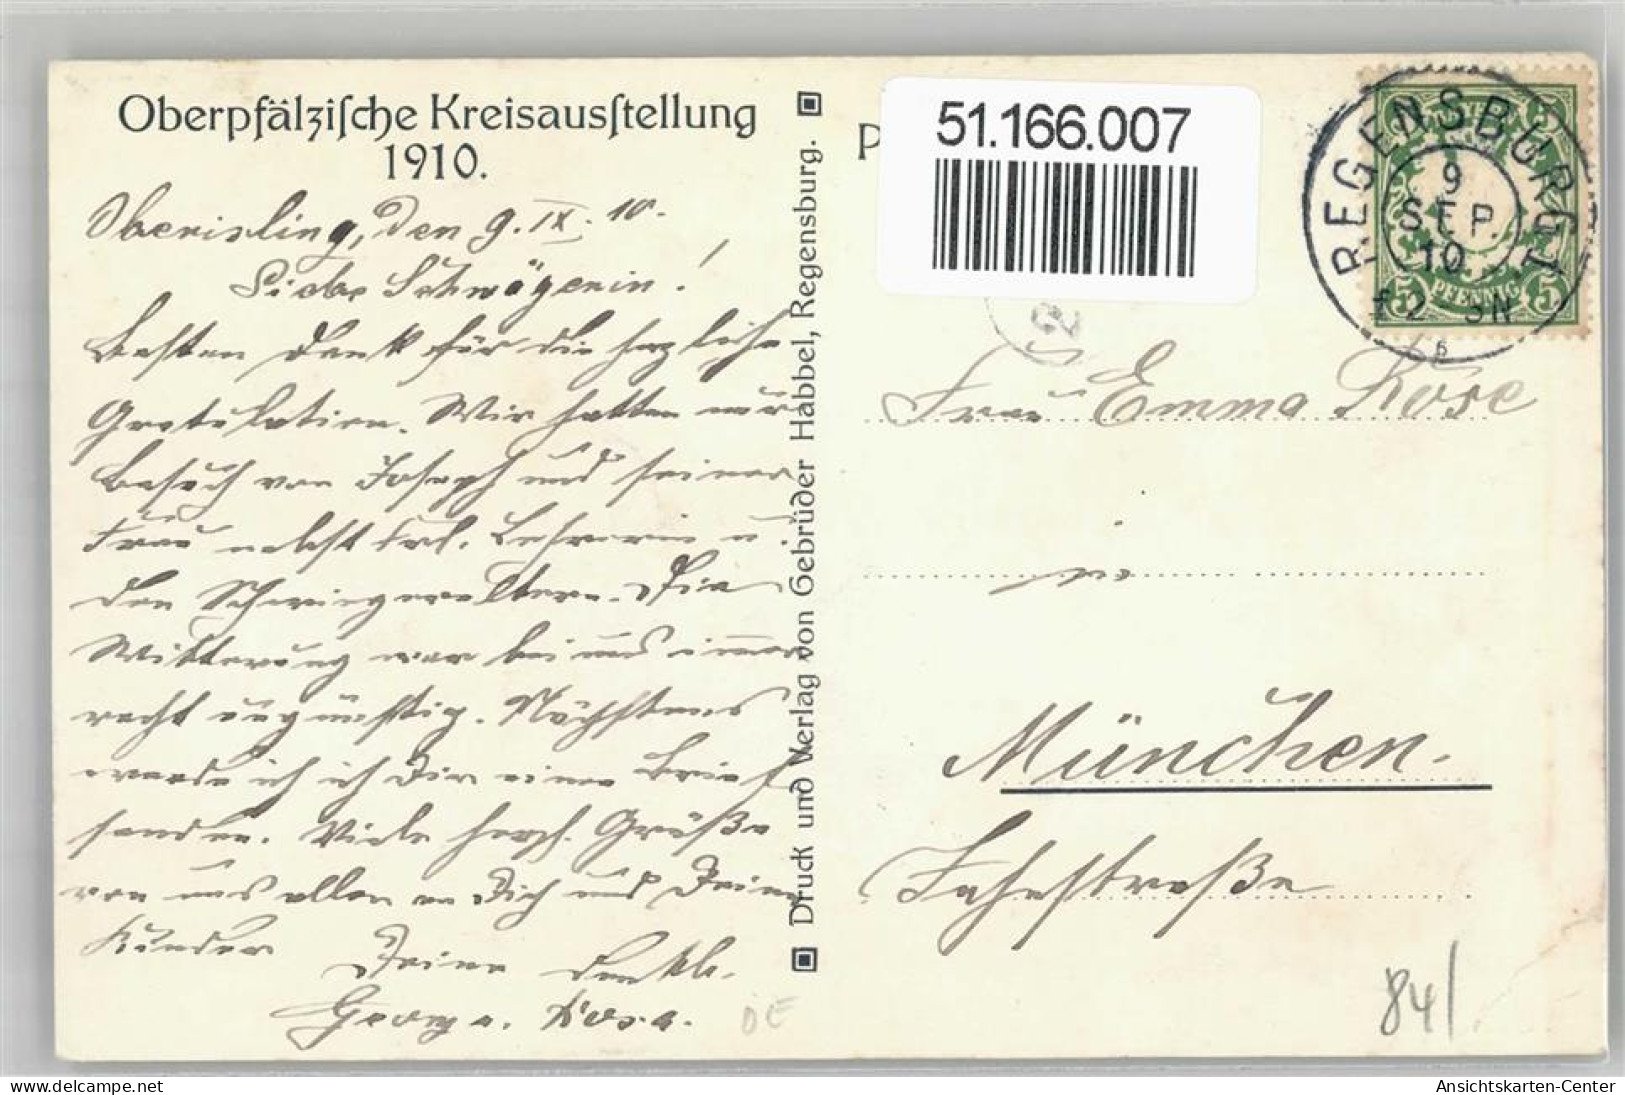 Oberpfälzische Kreisausstellung
1910.
Oberisling, den 9. IX. 10.
Liebe Schwägerin!
Besten Dank für die herzliche
Gratulation. Wir hatten nur
Besuch von Joseph und seiner
Frau nebst Frl. Lehrerin u.
den Schwiegereltern. Die
Witterung war bei uns immer
recht ungünstig. Nächstens
werde ich Dir einen Brief
senden. Viele herzl. Grüße
von uns allen an Dich und Deine
Kinder
Deine dankb.
Georg u. Rosa.
Druck und Verlag von Gebrüder Habbel, Regensburg.
51.166.007
P
REGENSBURG 1
9
SEP.
10
5 PFENNIG 5
Frau Emma Rose
in
München.
84/
DE
www.delcampe.net
Ansichtskarten-Center